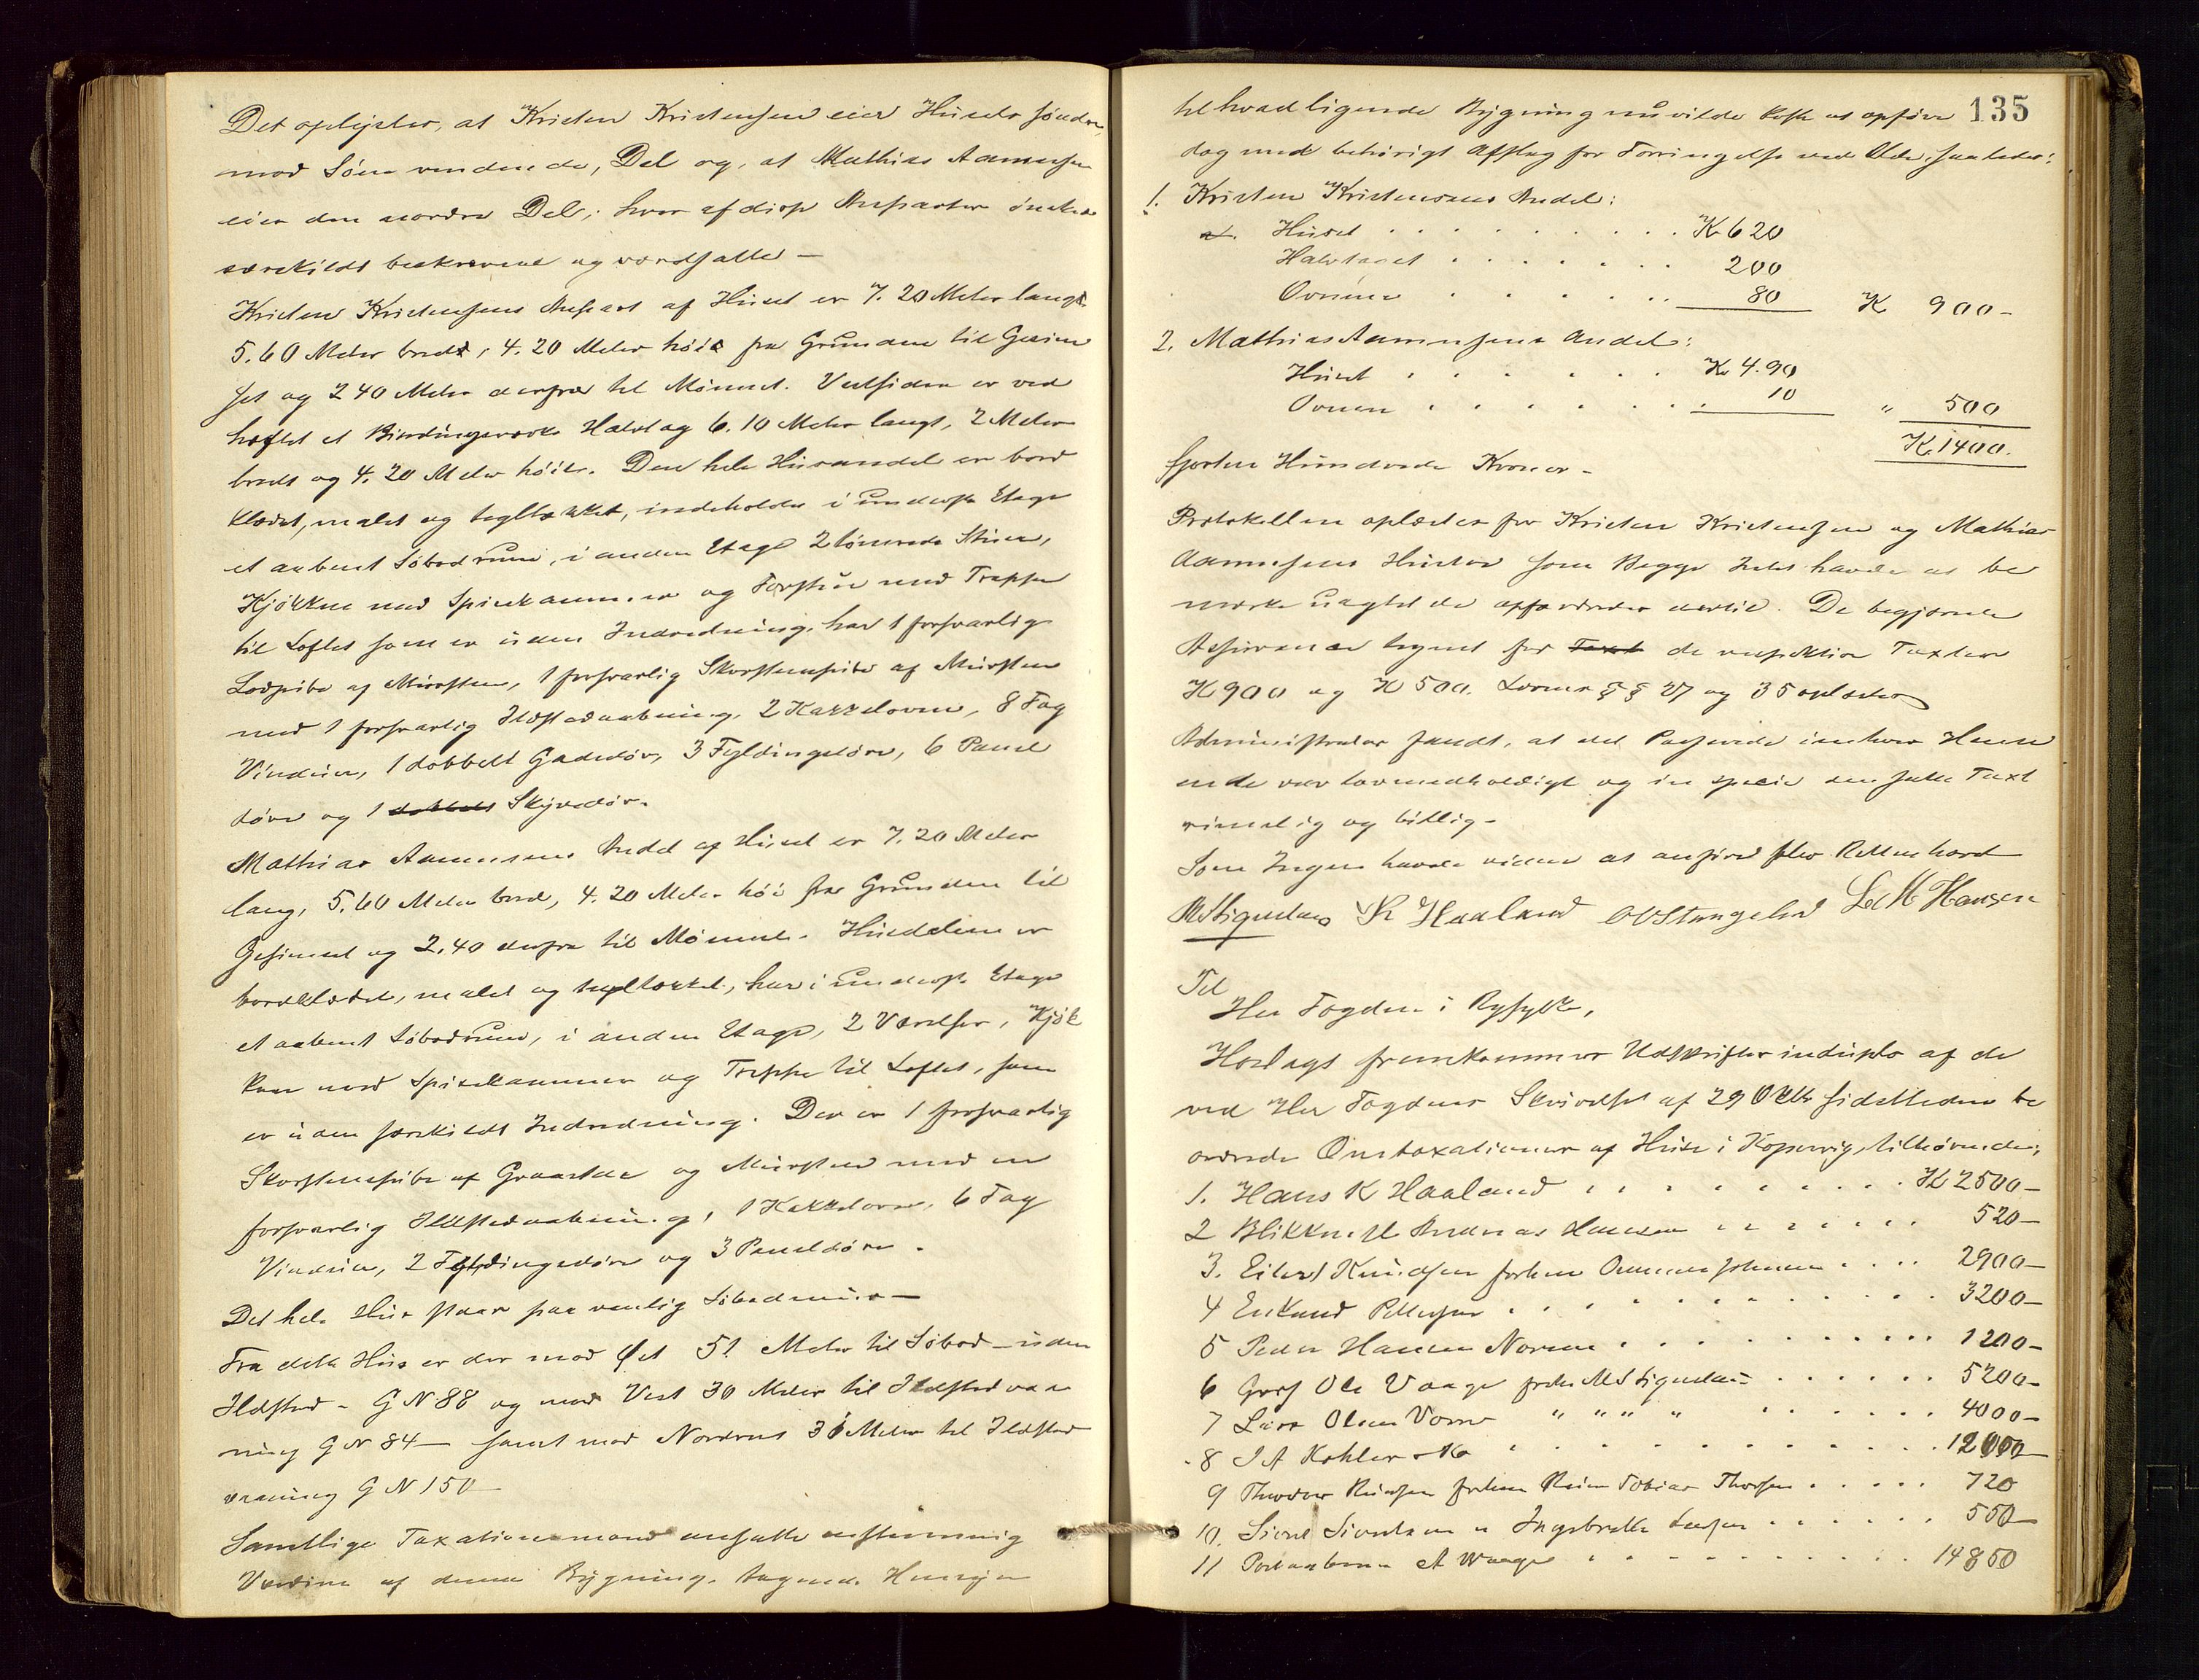 Det oplyster, at Kristen Kristensen eier Husets søndre,
mod Søen vendende, Del og, at Mathias Aamunsen
eier den nordre Del; hver af disse Anparter ønskes
særskildt beskrevne og værdsatte —
Kristen Kristensens Anpart af Huset er 7.20 Meter langt
5.60 Meter bredt, 4.20 Meter høit fra Grunden til Gesim
set og 2 40 Meter derfra til Mønnet. Vestsiden er ved
hæftet et Bindingsværks Halvtag 6.10 Meter langt, 2 Meter
bredt og 4.20 Meter høit. Den hele Husandel er bord
klædt, malet og tegltækket, indeholder i underste Etage
et aabent Søbodrum, i anden Etage 2 tømrede Stuer,
Kjøkken med Spisekammer og Forstue med Trappe
til Loftet som er uden Indredning, har 1 forsvarlig
Lodpibe af Mursten, 1 forsvarlig Skorstenspibe af Mursten
med 1 forsvarlig Ildstedaabning, 2 Kakkelovne, 8 Fag
Vinduer, 1 dobbelt Gadedør, 3 Fyldingsdøre, 6 Panel
døre og 1 dobbelt Skyvedør.
Mathias Aamunsens Andel af Huset er 7.20 Meter
lang, 5.60 Meter bred, 4.20 Meter høi fra Grunden til
Gesimset og 2.40 derfra til Mønnet. Husdelen er
bordklædt, malet og tegltækket, har i underste Etage
et aabent Søbodrum, i anden Etage, 2 Værelser, Kjøk
ken med Spisekammer og Trappe til Loftet, som
er uden særskildt Indredning. Der er 1 forsvarlig
Skorstenspibe af Graasten og Mursten med en
forsvarlig Ildstedaabning, 1 Kakkelovn, 6 Fag
Vinduer, 2 Fyldingsdøre og 3 Paneldøre.
Det hele Hus staar paa vanlig Søbodmur —
Fra dette Hus er der mod Øst 51 Meter til Søbod — uden
Ildsted — G N 88 og mod Vest 30 Meter til Ildstedvaa
ning G N 84 — samt mod Nordvest 31 Meter til Ildsted
vaaning G N 150
Samtlige Taxationsmænd ansatte enstemmig
Værdien af denne Bygning, tagende Hensyn
til hvad lignende Bygning nu vilde koste at opføre 135
dog med behørigt Afslag for Forringelse ved Ælde, saaledes:
1. Kristen Kristensens Andel:
a. Huset . . . . . . . . . K 620
Halvtaget . . . . . . . 200
Ovnene . . . . . . . 80 K 900 —
2. Mathias Aamunsens Andel:
Huset . . . . . . . K 4.90
Ovnen . . . . . . . 10 " 500
K 1400.
fjorten Hundrede Kroner —
Protokollen oplæstes for Kristen Kristensen og Mathias
Aamunsens Hustru som Begge Intet havde at be
mærke uagtet de opfordredes dertil. De begjærede
Assurance tegnet for Taxt de respektive Taxter
K 900 og K 500. Lovens §§ 27 og 35 oplæstes
Administrator fandt, at det Passerede i enhver Hense
ende var lovmedholdigt og in specie den satte Taxt
rimelig og billig —
Som Ingen havde videre at anføre blev Retten hævet
M Stignedens K Haaland O V Stangeland L M Hansen
Til
Herr Fogden i Ryfylke,
Hoslagt fremkommer Udskrifter in duplo af de
ved Herr Fogdens Skrivelse af 29 Oktbr sidstleden be
ordrede Omtaxationer af Huse i Kopervig, tilhørende:
1. Hans K Haaland . . . . . . . . . K 2500 —
2 Blikkensl Andreas Hansen . . . . . . . 520 —
3. Eilert Knudsen forhen . . . . 2900 —
4 Enkemd Pettersen . . . . . . . . . 3200 —
5 Peder Hansen Norem . . . . . . . . . 1200 —
6 Gross Ole Vaage forhen . . . . . . 5200 —
7 Lars Olsen Vorre " " " " . . . . . . 4000 —
8 J A Køhler & Ko . . . . . . . . . . 12000 —
9 Thodor Knudsen forhen Tobias Thorsen . . . . . 720
10. Sivert Sivertsen . . . . . . 550 —
11 Postaabner A Waage . . . . . . . . . 14850